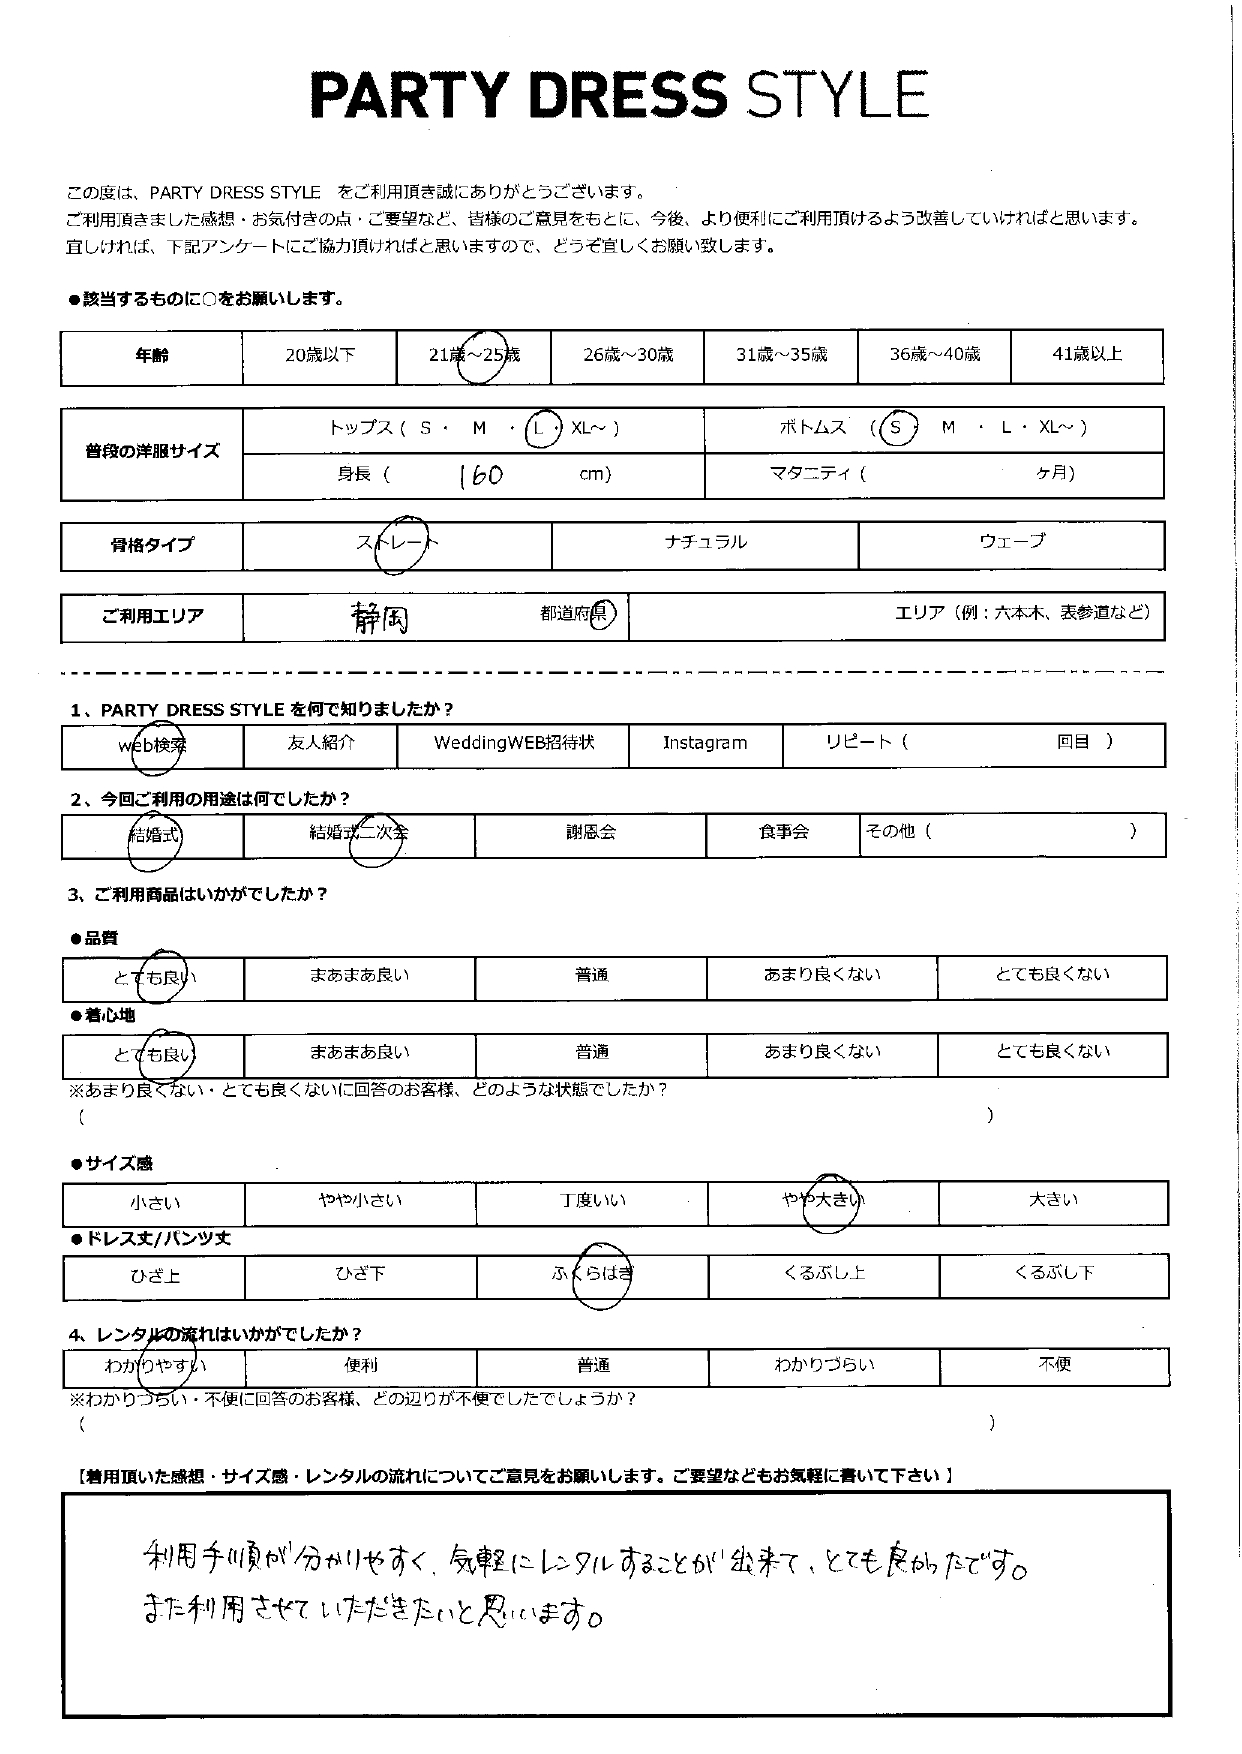 PARTY DRESS STYLE
この度は、PARTY DRESS STYLE をご利用頂き誠にありがとうございます。
ご利用頂きました感想・お気付きの点・ご要望など、皆様のご意見をもとに、今後、より便利にご利用頂けるよう改善していければと思います。
宜しければ、下記アンケートにご協力頂ければと思いますので、どうぞ宜しくお願い致します。
●該当するものに○をお願いします。
年齢 20歳以下 21歳～25歳 26歳～30歳 31歳～35歳 36歳～40歳 41歳以上
普段の洋服サイズ トップス ( S ・ M ・ L ・ XL～ ) ボトムス ( S ・ M ・ L ・ XL～ )
身長 ( 160 cm) マタニティ ( ヶ月)
骨格タイプ ストレート ナチュラル ウェーブ
ご利用エリア 静岡 都道府県 エリア（例：六本木、表参道など）
1、PARTY DRESS STYLE を何で知りましたか？
web検索 友人紹介 WeddingWEB招待状 Instagram リピート（ 回目 ）
2、今回ご利用の用途は何でしたか？
結婚式 結婚式二次会 謝恩会 食事会 その他（ ）
3、ご利用商品はいかがでしたか？
●品質
とても良い まあまあ良い 普通 あまり良くない とても良くない
●着心地
とても良い まあまあ良い 普通 あまり良くない とても良くない
※あまり良くない・とても良くないに回答のお客様、どのような状態でしたか？
（ ）
●サイズ感
小さい やや小さい 丁度いい やや大きい 大きい
●ドレス丈/パンツ丈
ひざ上 ひざ下 ふくらはぎ くるぶし上 くるぶし下
4、レンタルの流れはいかがでしたか？
わかりやすい 便利 普通 わかりづらい 不便
※わかりづらい・不便に回答のお客様、どの辺りが不便でしたでしょうか？
（ ）
【着用頂いた感想・サイズ感・レンタルの流れについてご意見をお願いします。ご要望などもお気軽に書いて下さい】
利用手順が分かりやすく、気軽にレンタルすることが出来て、とても良かったです。
また利用させていただきたいと思います。